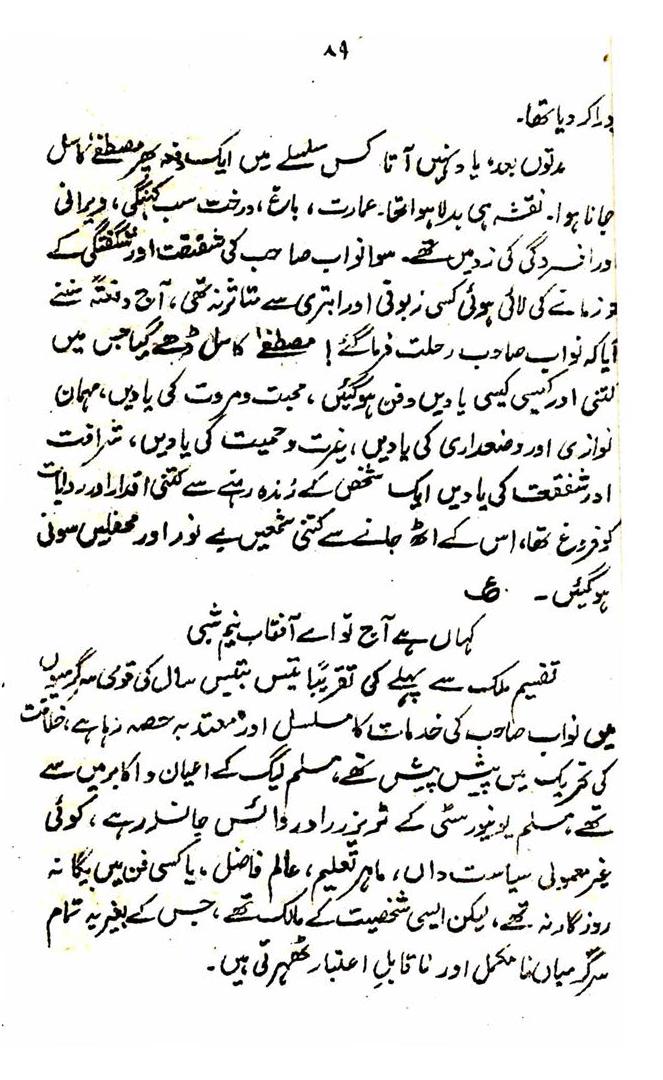 ۸۹
کر دیا تھا۔
مدتوں بعد، یاد نہیں آتا کس سلسلے میں ایک دفعہ پھر مصطفےٰ کاسل
جانا ہوا۔ نقشہ ہی بدلا ہوا تھا۔ عمارت، باغ، درخت سب کہنگی، ویرانی
اور افسردگی کی زد میں تھے۔ سوا نواب صاحب کی شفقت اور شگفتگی کے
جو زمانے کی لائی ہوئی کسی زبونی اور ابتری سے متاثر نہ تھی، آج دفعتہً سننے
آیا کہ نواب صاحب رحلت فرما گئے! مصطفےٰ کاسل ڈھے گیا جس میں
کتنی اور کیسی کیسی یادیں دفن ہو گئیں، محبت و مروت کی یادیں، مہمان
نوازی اور وضعداری کی یادیں، غیرت و حمیت کی یادیں، شرافت
اور شفقت کی یادیں ایک شخص کے زندہ رہنے سے کتنی اقدار اور روایات
کو فروغ تھا، اس کے اٹھ جانے سے کتنی شمعیں بے نور اور محفلیں سونی
ہو گئیں۔ ؏
کہاں ہے آج تو اے آفتاب نیم شبی
تقسیم ملک سے پہلے کی تقریباً تیس بتیس سال کی قومی سرگرمیوں
میں نواب صاحب کی خدمات کا مسلسل اور معتد بہ حصہ رہا ہے، خلافت
کی تحریک میں پیش پیش تھے، مسلم لیگ کے اعیان و اکابر میں سے
تھے، مسلم یونیورسٹی کے ٹریزرر اور وائس چانسلر رہے، کوئی
غیر معمولی سیاست داں، ماہر تعلیم، عالم فاضل، یا کسی فن میں یگانہ
روزگار نہ تھے، لیکن ایسی شخصیت کے مالک تھے، جس کے بغیر یہ تمام
سرگرمیاں نا مکمل اور ناقابلِ اعتبار ٹھہرتی ہیں۔